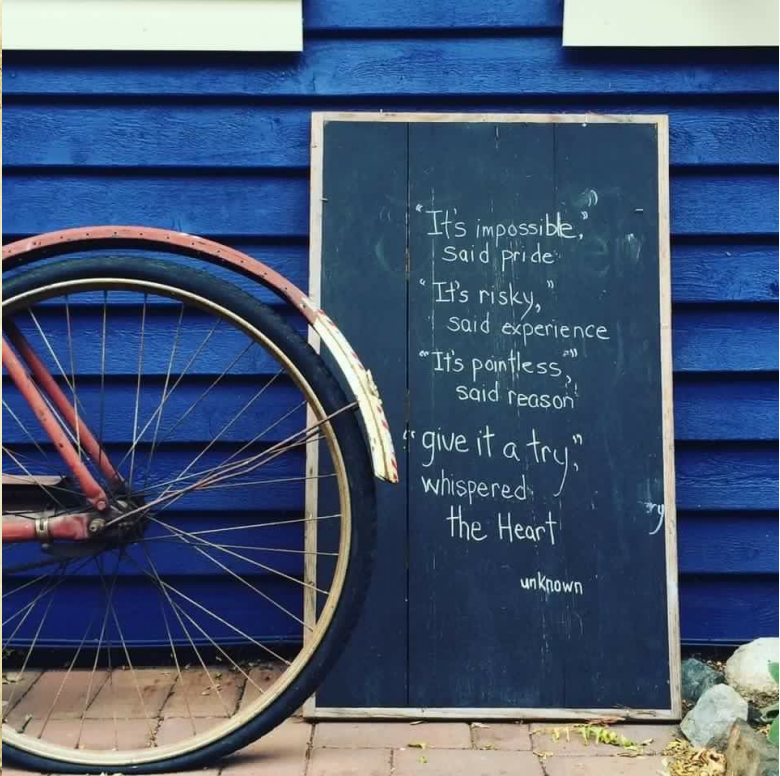 "It's impossible,"
said pride
"It's risky,"
said experience
"It's pointless,"
said reason
"give it a try,"
whispered
the Heart
unknown